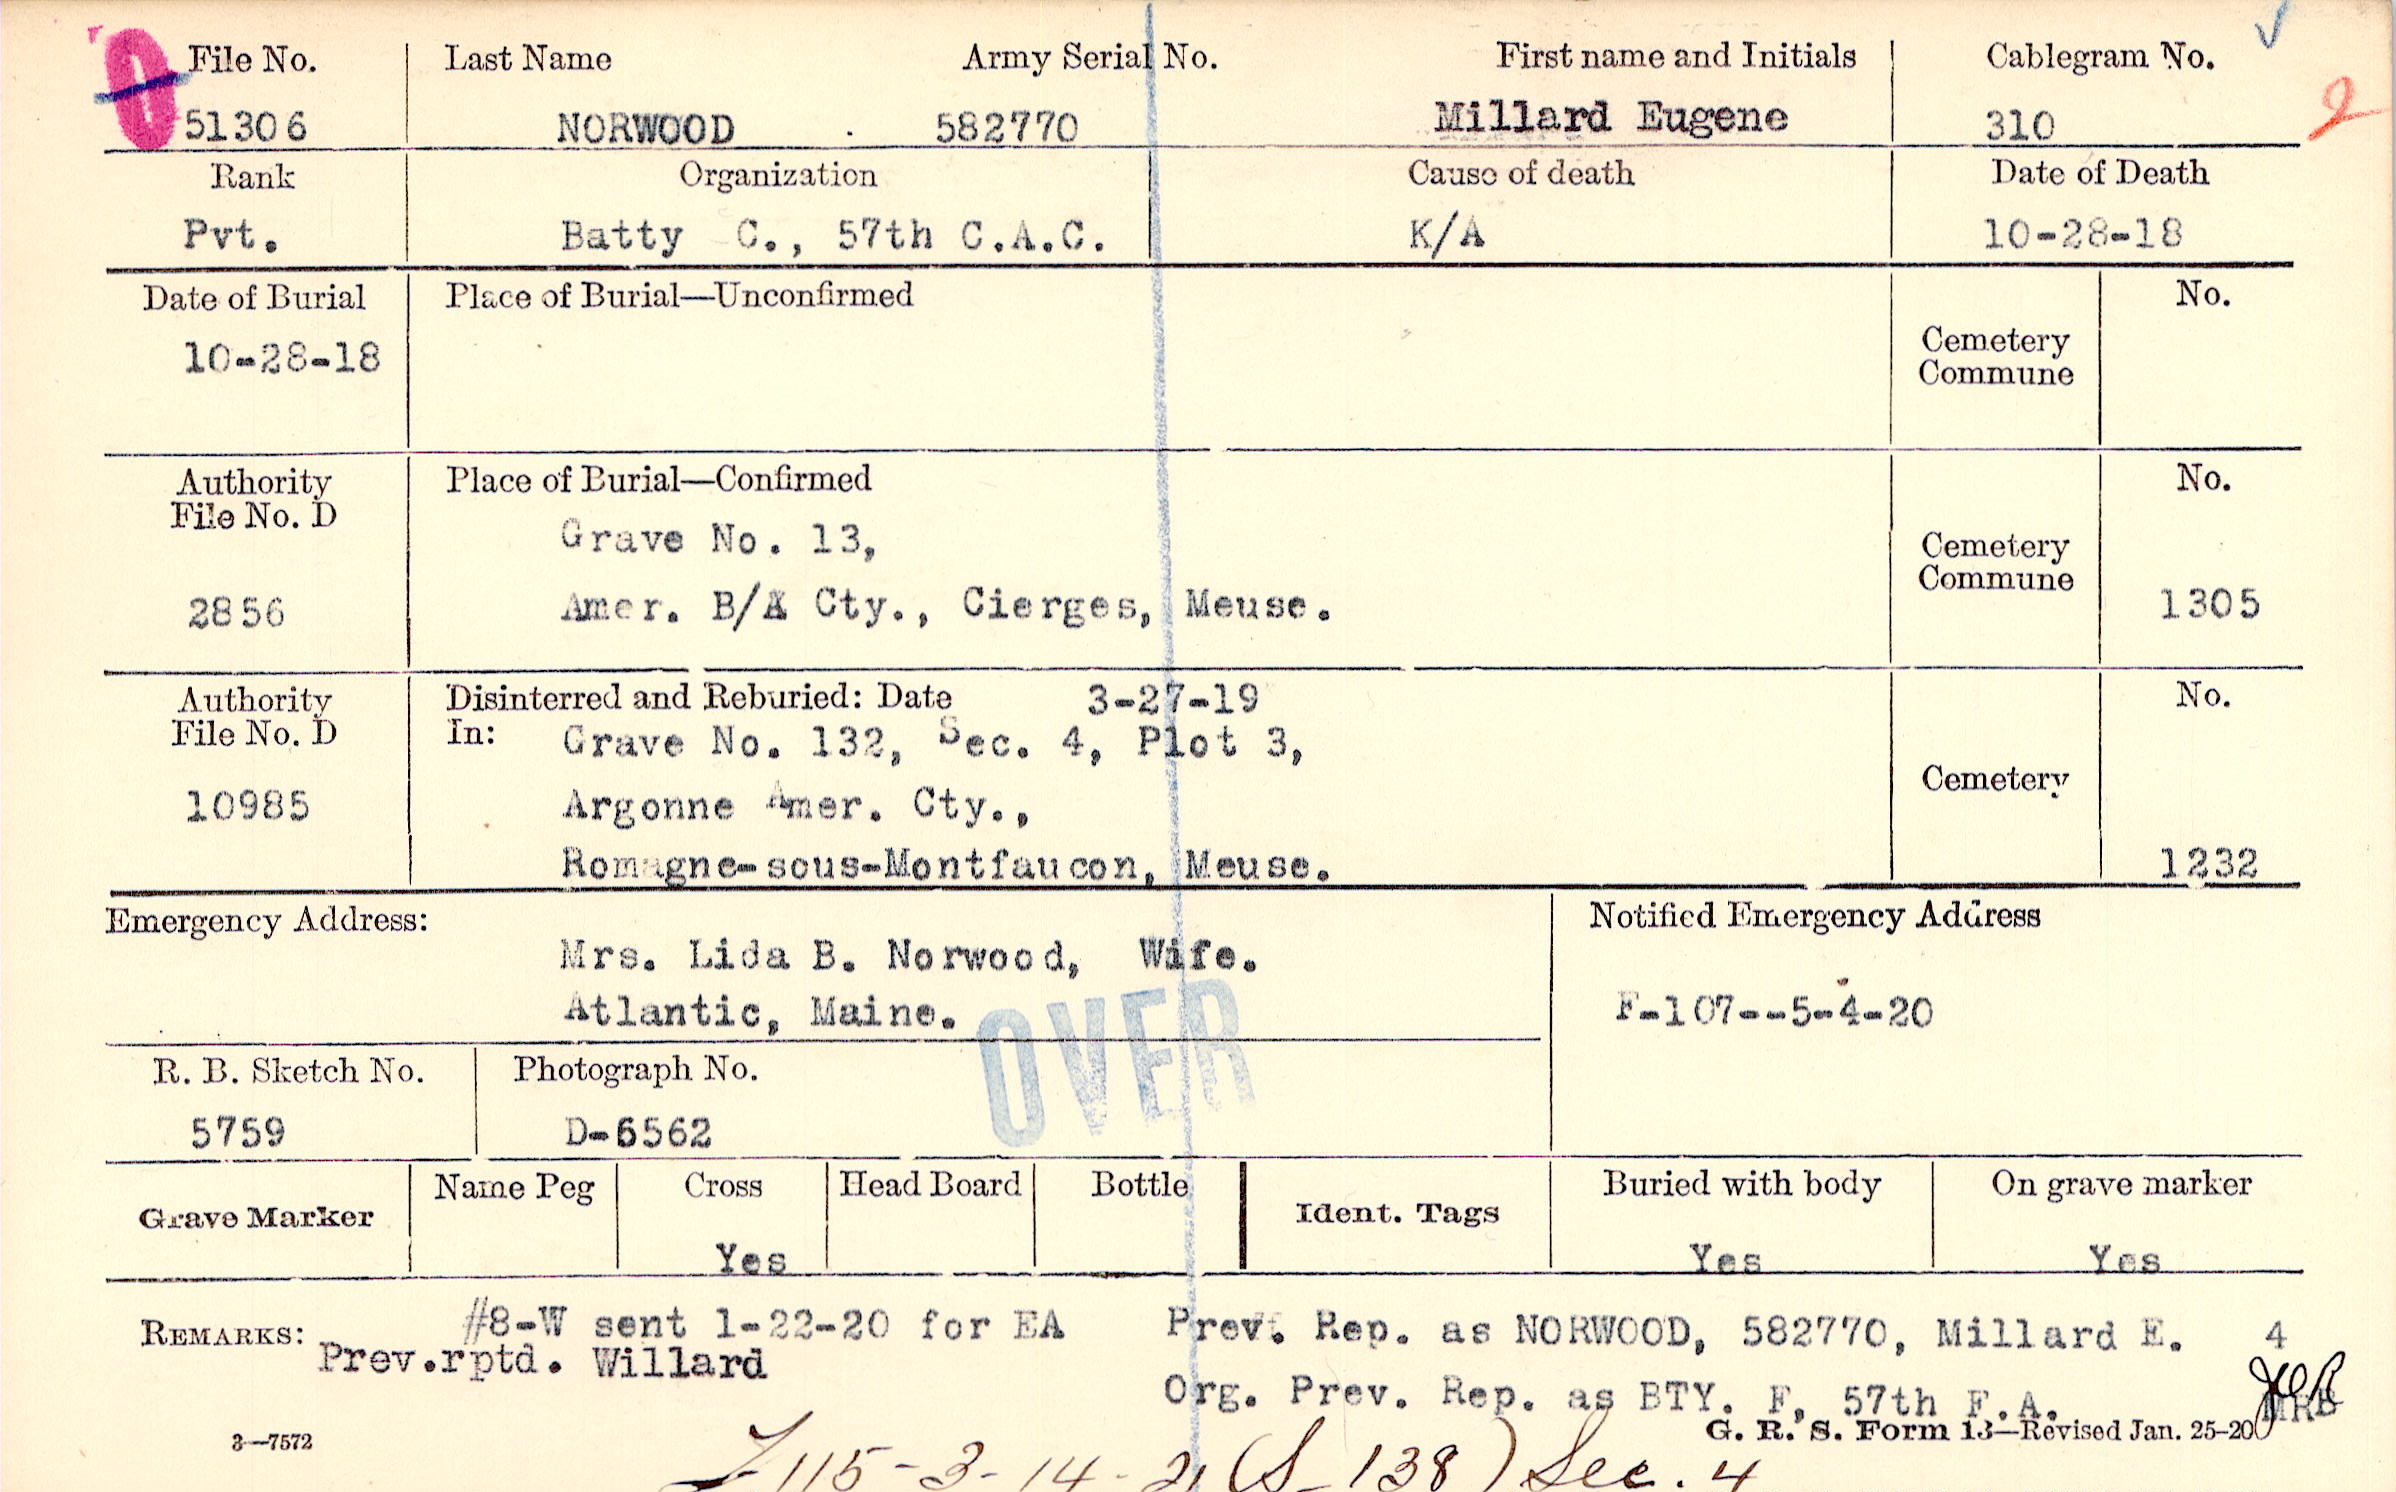 File No. Last Name Army Serial No. First name and Initials Cablegram No.
51306 NORWOOD . 582770 Millard Eugene 310
2
Rank Organization Cause of death Date of Death
Pvt. Batty C., 57th C.A.C. K/A 10-28-18
Date of Burial Place of Burial—Unconfirmed No.
10-28-18
Cemetery
Commune
Authority Place of Burial—Confirmed No.
File No. D
Grave No. 13,
Cemetery
Commune
2856 Amer. B/A Cty., Cierges, Meuse. 1305
Authority Disinterred and Reburied: Date 3-27-19 No.
File No. D In: Grave No. 132, Sec. 4, Plot 3,
Cemetery
10985 Argonne Amer. Cty.,
Romagne-sous-Montfaucon, Meuse. 1232
Emergency Address: Notified Emergency Address
Mrs. Lida B. Norwood, Wife.
Atlantic, Maine. F-107--5-4-20
OVER
R. B. Sketch No. Photograph No.
5759 D-6562
Grave Marker Name Peg Cross Head Board Bottle Ident. Tags Buried with body On grave marker
Yes Yes Yes
REMARKS: #8-W sent 1-22-20 for EA Prev. Rep. as NORWOOD, 582770, Millard E. 4
Prev.rptd. Willard
Org. Prev. Rep. as BTY. F, 57th F.A. MRB
3—7572 G. R. S. Form 13—Revised Jan. 25-20
115-3-14-21 (S-138) Sec. 4